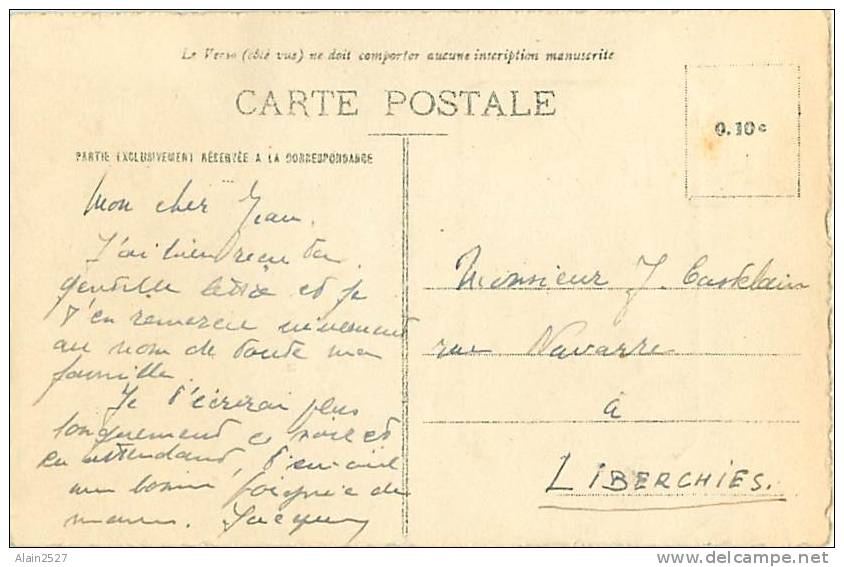 Le Verso (côté vue) ne doit comporter aucune inscription manuscrite
CARTE POSTALE
0.10 c
PARTIE EXCLUSIVEMENT RÉSERVÉE A LA CORRESPONDANCE
Mon cher Jean.
J'ai bien reçu ta
gentille lettre et je
t'en remercie vivement
au nom de toute ma
famille.
Je t'écrirai plus
longuement ce soir et
en attendant, t'envoie
une bonne poignée de
mains. Jacques
Monsieur J. Castelain
rue Navarre
à
LIBERCHIES.
Alain2527
delcampe.net